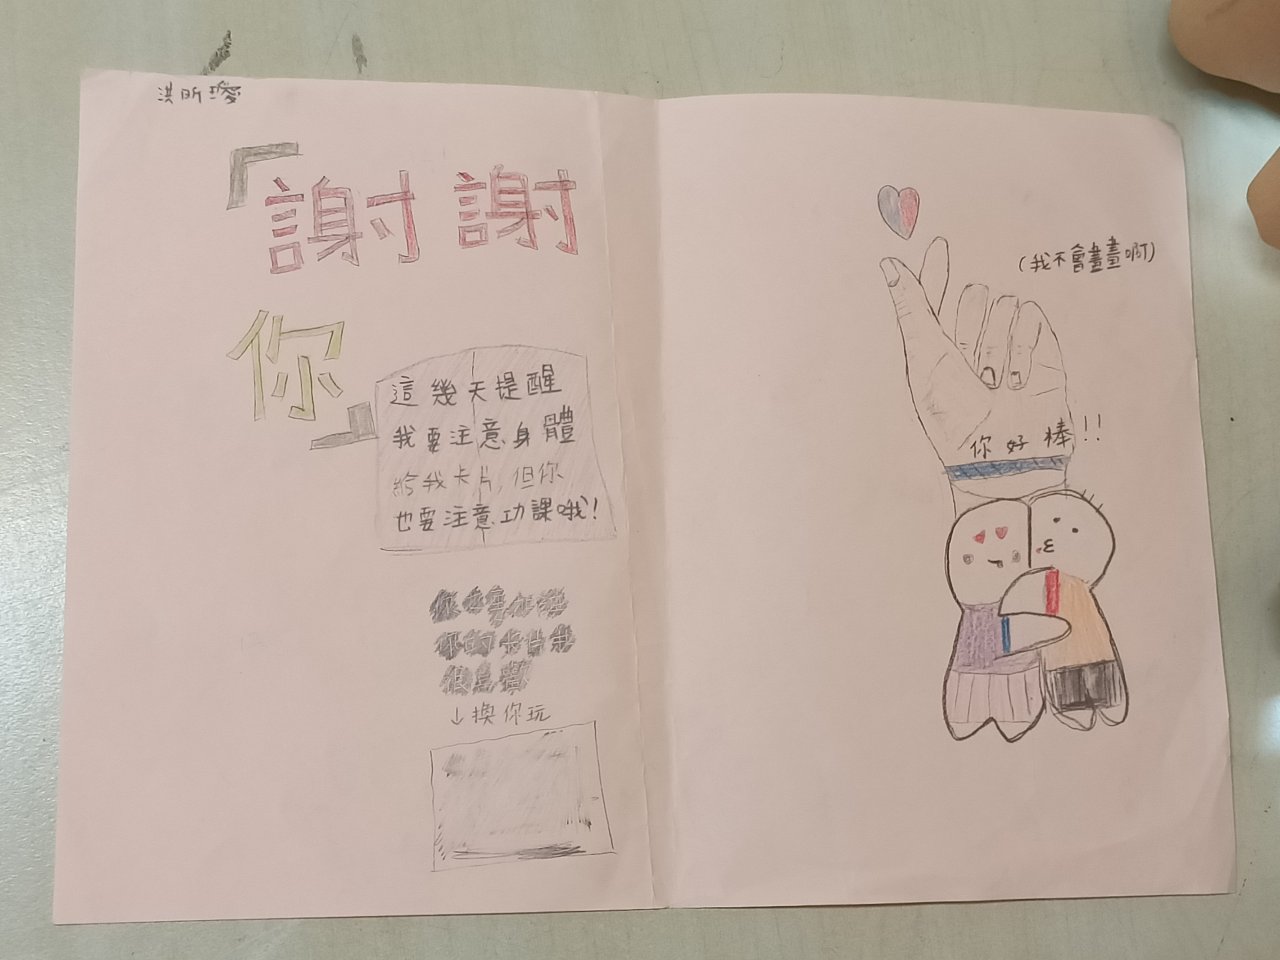 洪昕璦
「謝謝
你」
這幾天提醒
我要注意身體
給我卡片,但你
也要注意功課哦!
↓換你玩
(我不會畫畫啊)
你好棒!!